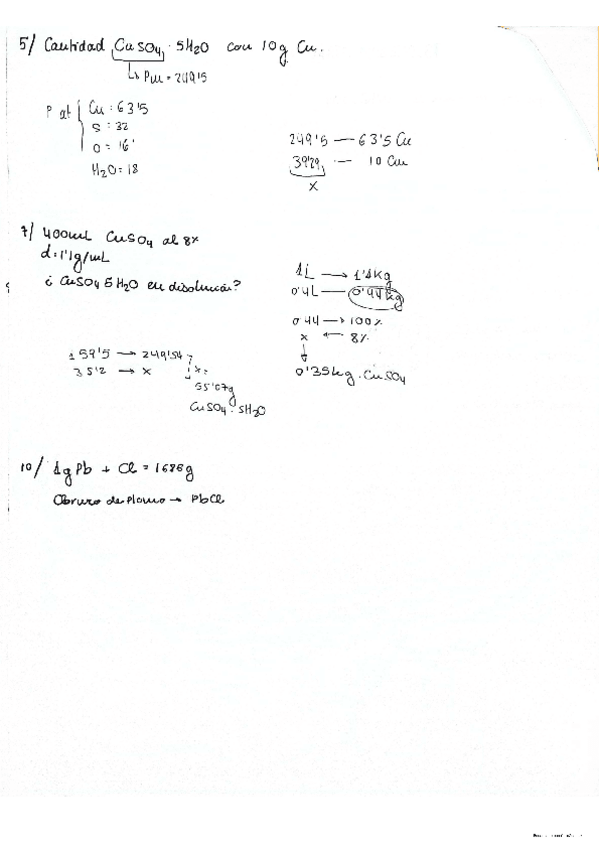 5/ Cantidad CuSO4 · 5H2O con 10g Cu.
↳ Pm = 249'5
P at { Cu : 63'5
S : 32
O = 16'
H2O = 18
249'5 — 63'5 Cu
39'29 — 10 Cu
x
7/ 400mL CuSO4 al 8%
d = 1'1g/mL
¿ CuSO4 5H2O en disolución?
1L → 1'1kg
0'4L — 0'44kg
0'44 → 100%
x ← 8%
0'35kg · CuSO4
159'5 → 249'54
35'2 → x
x =
55'07g
CuSO4 · 5H2O
10/ 1g Pb + Cl = 1686g
Cloruro de plomo → PbCl